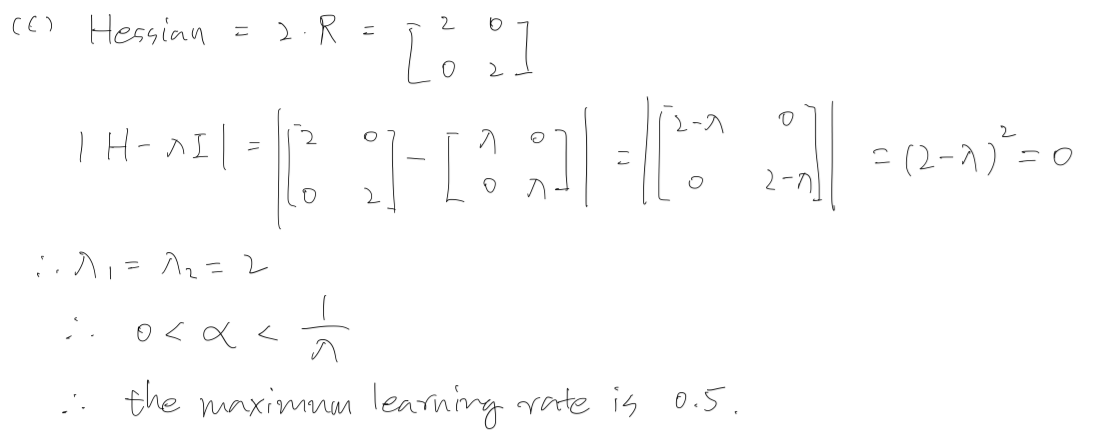 (c) Hessian = 2·R = [2 0; 0 2]
|H-λI| = |[2 0; 0 2] - [λ 0; 0 λ]| = |[2-λ 0; 0 2-λ]| = (2-λ)² = 0
∴ λ₁ = λ₂ = 2
∴ 0 < α < 1/λ
∴ the maximum learning rate is 0.5.